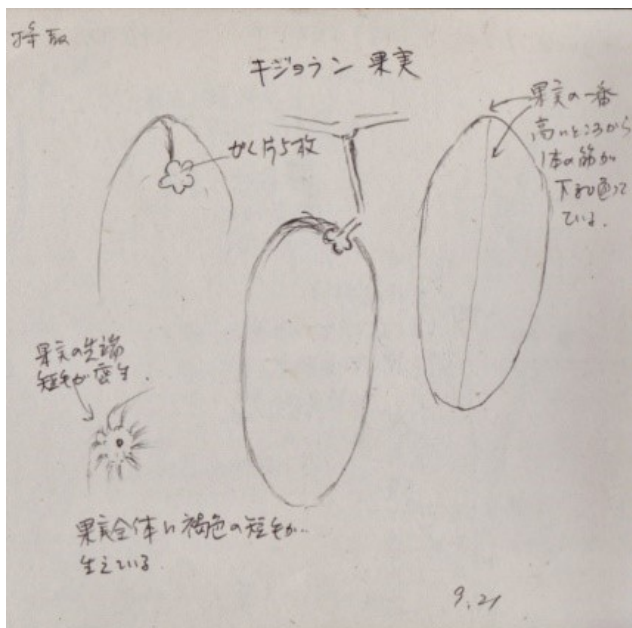 採取
キジョラン 果実
がく片5枚
果実の一番
高いところから
1本の筋が
下まで通って
いる.
果実の先端
短毛が密生.
果実全体に褐色の短毛が
生えている.
9.21